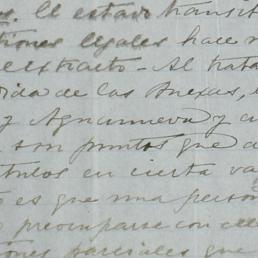 s. El estado transit
tiones legales hace n
el extracto - Al trata
dida de las Anexas, e
y Aguanueva y a
son puntos que a
tulos en cierta va
es que una person
preocuparse con ell
ones parciales que